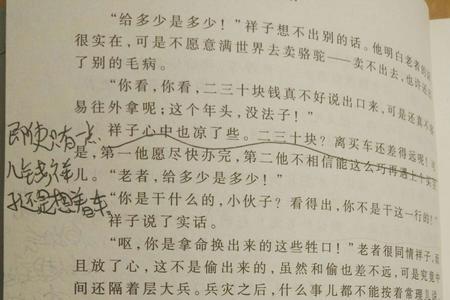 “给多少是多少！”祥子想不出别的话。他明白老者的话
很实在，可是不愿意满世界去卖骆驼——卖不出去，也许还出
了别的毛病。
“你看，你看，二三十块钱真不好说出口来，可是还真不容
易往外拿呢；这个年头，没法子！”
祥子心中也凉了些。二三十块？离买车还差得远呢！可
是，第一他愿尽快办完，第二他不相信能这么巧再遇上个买
儿。“老者，给多少是多少！”
“你是干什么的，小伙子？看得出，你不是干这一行的！”
祥子说了实话。
“呕，你是拿命换出来的这些牲口！”老者很同情祥子，而
且放了心，这不是偷出来的，虽然和偷也差不远，可是究竟中
间还隔着层大兵。兵灾之后，什么事儿都不能按着常理儿说
即使只有一点
儿钱祥
子还是想着车